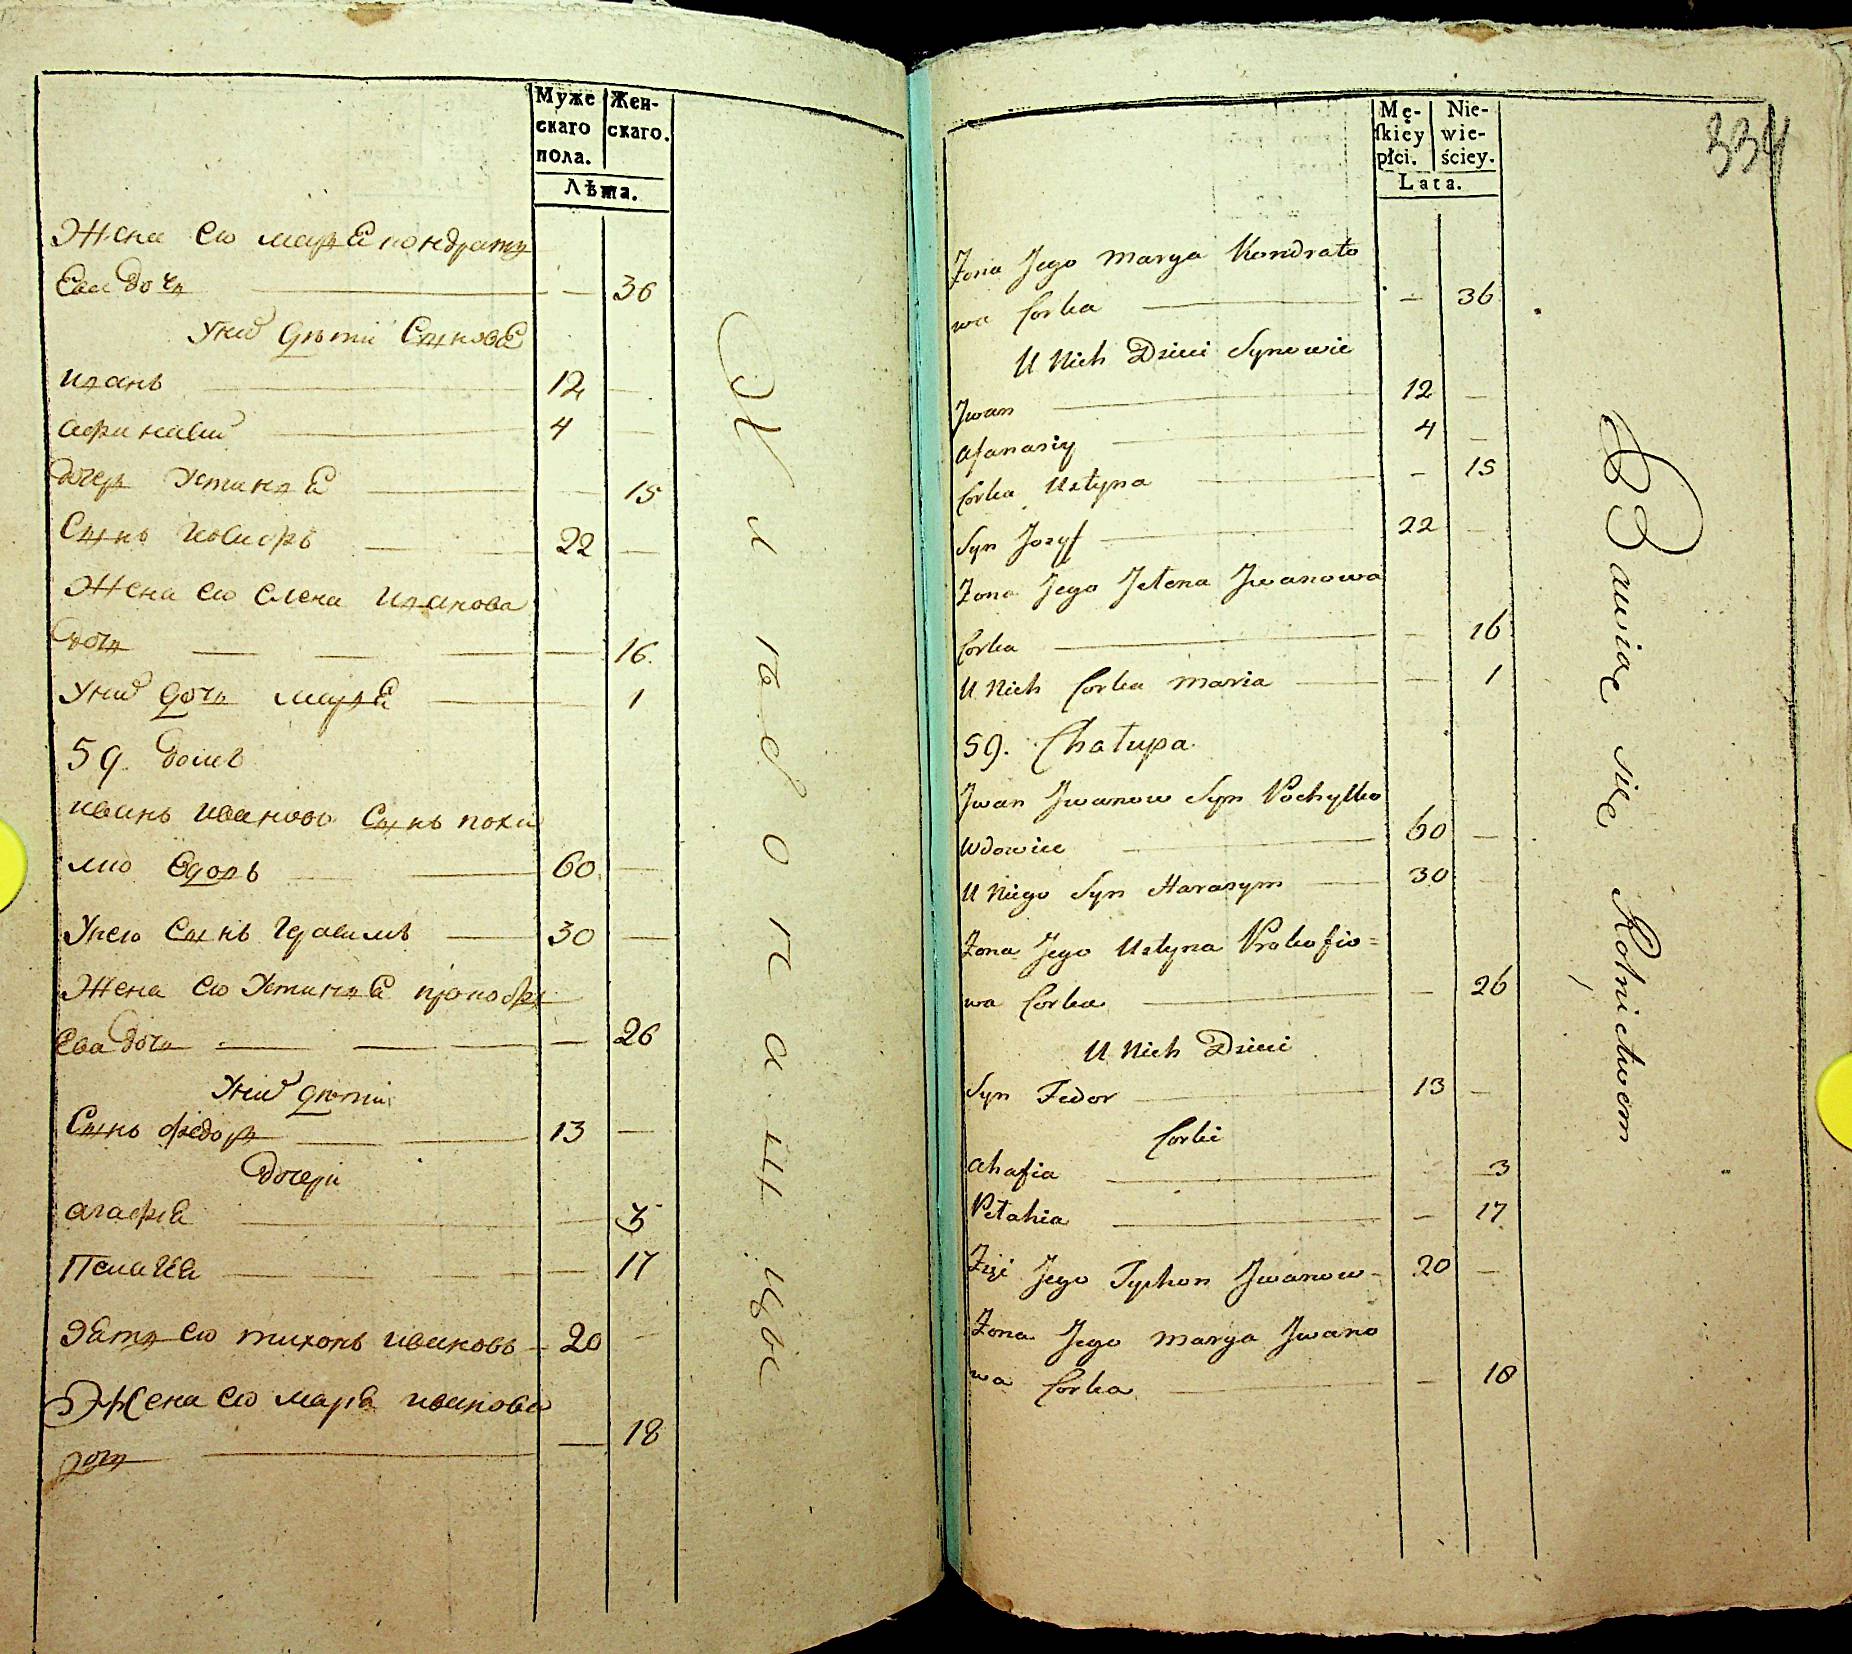 Муже
скаго
пола.
Жен-
скаго.
Лѣта.
Жена ево марѧ кондратѧ
ева дочь — 36
Уних дѣти Сынове
иванъ 12 —
афанасии 4 —
дочерь Устиния — 15
Сынъ иосифъ 22 —
Жена ево елена иванова
дочь — 16
Уних дочь марья — 1
59. домъ
иванъ ивановъ Сынъ похи
лко вдовъ 60 —
Унего Сынъ герасимъ 30 —
Жена ево Устиния прокофь
ева дочь — 26
Уних дѣти
Сынъ федоръ 13 —
дочери
агафия — 3
Пелагея — 17
Зять ево тихонъ ивановъ 20 —
Жена ево марья иванова
дочь — 18
Жилѣбопашцы
334
Mę-
ſkiey
płci.
Nie-
wie-
ściey.
Lata.
Żona Jego Marya Kondrato
wa Corka — 36
U Nich Dzieci Synowie
Jwan 12 —
Afanasiy 4 —
Corka Ustyna — 15
Syn Jozyf 22 —
Żona Jego Jelena Jwanowa
Corka — 16
U Nich Corka Maria — 1
59. Chałupa
Jwan Jwanow Syn Pochylko
Wdowiec 60 —
U Niego Syn Harasym 30
Żona Jego Ustyna Prokofio=
wa Corka — 26
U Nich Dzieci
Syn Fedor 13 —
Corki
Ahafia 3
Pełahia — 17
Zięć Jego Tychon Jwanow 20 —
Żona Jego Marya Jwano
wa Corka — 18
Bawiące się Rolnictwem